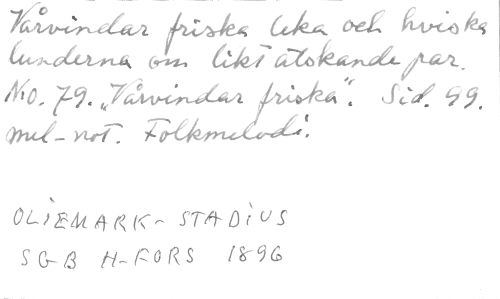 Vårvindar friska leka och hviska
lunderna om likt älskande par.
No. 79. „Vårvindar friska". Sid. 99.
mel-not. Folkmelodi.
OLIEMARK- STADIUS
SGB H-FORS 1896